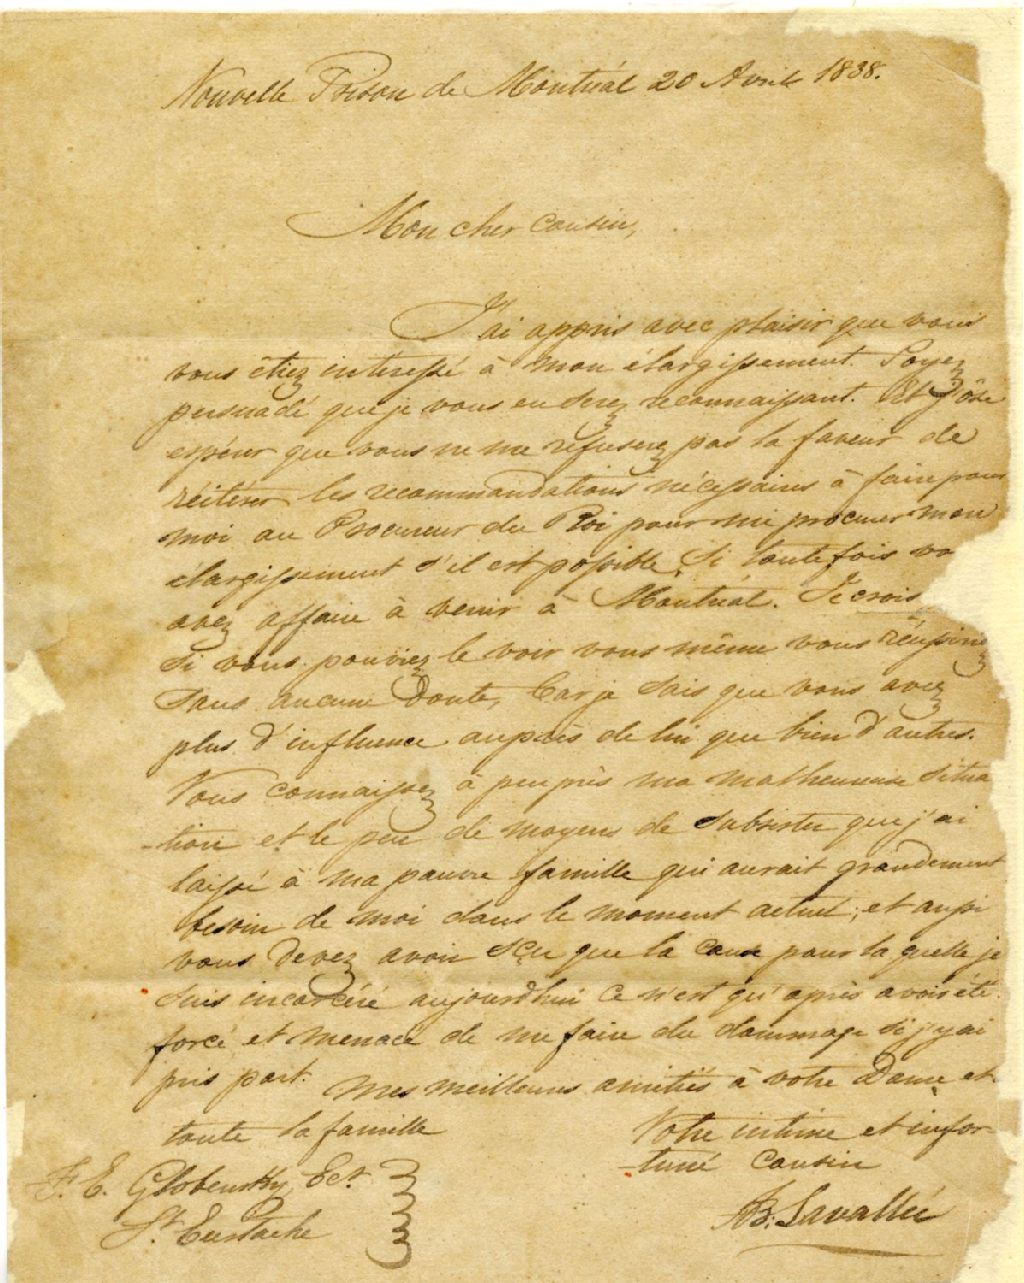 Nouvelle Prison de Montréal 20 Avril 1838.
Mon cher Cousin,
J'ai appris avec plaisir que vous
vous étiez intéressé à mon élargissement. Soyez
persuadé que je vous en serez reconnaissant. Et j'ôse
espérer que vous ne me refuserez pas la faveur de
réitérer les recommandations nécessaires à faire pour
moi au Procureur du Roi pour me procurer mon
élargissement s'il est possible, si toutefois vo
avez affaire à venir à Montréal. Je crois
Si vous pouviez le voir vous même vous réussiriez
Sans aucune doute, Car je sais que vous avez
plus d'influence auprès de lui que bien d'autres.
Vous connaissez à peu près ma malheureuse situa
-tion et le peu de moyens de subsister que j'ai
laissé à ma pauvre famille qui aurait grandement
besoin de moi dans le moment actuel; et aussi
vous devez avoir sçu que la cause pour la quelle je
suis incarcéré aujourdhui ce n'est qu'après avoir été
forcé et menacé de me faire du dommage si j'y ai
pris part. Mes meilleures amitiés à votre Dame et
toute la famille
Votre intime et infor
tuné Cousin
F. E. Globensky Ecr.
St. Eustache
JB. Lavallée